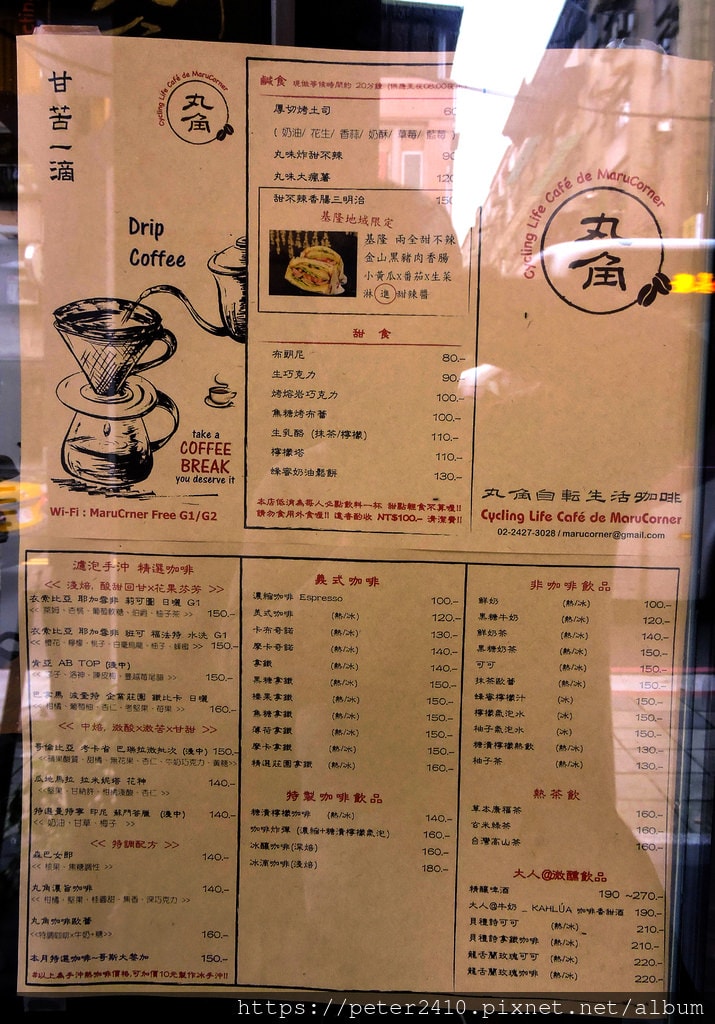 甘苦一滴
Cycling Life Café de MaruCorner
丸角
Drip
Coffee
take a
COFFEE
BREAK
you deserve it
Wi-Fi : MaruCrner Free G1/G2
鹹食 現做等候時間約 20分鐘
厚切烤土司 60
( 奶油/ 花生/ 香蒜/ 奶酥/ 草莓/ 藍莓 )
丸味炸甜不辣 90
丸味大瘋薯 120
甜不辣香腸三明治 150
基隆地域限定
基隆 兩全甜不辣
金山黑豬肉香腸
小黃瓜x番茄x生菜
淋 進 甜辣醬
甜 食
布朗尼 80.-
生巧克力 90.-
烤熔岩巧克力 100.-
焦糖烤布蕾 100.-
生乳酪 (抹茶/檸檬) 110.-
檸檬塔 110.-
蜂蜜奶油鬆餅 130.-
本店低消為每人必點飲料一杯 甜點輕食不算喔!!
請勿食用外食喔!! 違者酌收 NT$100.- 清潔費!!
Cycling Life Café de MaruCorner
丸角
丸角自転生活咖啡
Cycling Life Café de MaruCorner
02-2427-3028 / marucorner@gmail.com
濾泡手沖 精選咖啡
<< 淺焙, 酸甜回甘x花果芬芳 >>
衣索比亞 耶加雪菲 莉可圖 日曬 G1
<< 萊姆、杏桃、葡萄軟糖、伯爵、柚子茶 >> 150.-
衣索比亞 耶加雪菲 班可 福法特 水洗 G1
<< 橙花、檸檬、桃子、白毫烏龍、柚子、蜂蜜 >> 150.-
肯亞 AB TOP (淺中)
150.-
巴拿馬 波奎特 企業莊園 鐵比卡 日曬
<< 柑橘、葡萄柚、杏仁、夏堅果、莓果 >> 160.-
<< 中焙, 微酸x微苦x甘甜 >>
哥倫比亞 考卡省 巴瑞拉微批次 (淺中) 150.-
<<蘋果酸質、甜橘、無花果、杏仁、牛奶巧克力、黃糖>>
瓜地馬拉 拉米妮塔 花神 140.-
<< 堅果、甘納許、柑橘淺酸、杏仁 >>
特選曼特寧 印尼 蘇門答臘 (淺中) 140.-
<< 奶油、甘草、梅子 >>
<< 特調配方 >>
森巴女郎 140.-
<< 核果、焦糖調性 >>
丸角濃旨咖啡 140.-
<< 柑橘、堅果、桂圓甜、焦香、深巧克力 >>
丸角咖啡歐蕾
<<特調咖啡x牛奶+糖>> 160.-
本月特選咖啡~哥斯大黎加 150.-
#以上為手沖熱咖啡價格,可加價10元製作冰手沖!!
義式咖啡
濃縮咖啡 Espresso 100.-
美式咖啡 (熱/冰) 120.-
卡布奇諾 (熱/冰) 130.-
摩卡奇諾 (熱/冰) 140.-
拿鐵 (熱/冰) 140.-
黑糖拿鐵 (熱/冰) 150.-
榛果拿鐵 (熱/冰) 150.-
焦糖拿鐵 (熱/冰) 150.-
薄荷拿鐵 (熱/冰) 150.-
摩卡拿鐵 (熱/冰) 150.-
精選莊園拿鐵 (熱/冰) 160.-
特製咖啡飲品
糖漬檸檬咖啡 (熱/冰) 140.-
咖啡炸彈 (濃縮+糖漬檸檬氣泡) 160.-
冰釀咖啡(深焙) 160.-
冰滴咖啡(淺焙) 180.-
非咖啡飲品
鮮奶 (熱/冰) 100.-
黑糖牛奶 (熱/冰) 120.-
鮮奶茶 (熱/冰) 140.-
黑糖奶茶 (熱/冰) 150.-
可可 (熱/冰) 150.-
抹茶歐蕾 (熱/冰) 150.-
蜂蜜檸檬汁 (冰) 150.-
檸檬氣泡水 (冰) 150.-
柚子氣泡水 (冰) 150.-
糖漬檸檬熱飲 (熱/冰) 130.-
柚子茶 (熱/冰) 130.-
熱茶飲
草本康福茶 160.-
玄米綠茶 160.-
台灣高山茶 160.-
大人@微醺飲品
精釀啤酒 190 ~270.-
大人@牛奶 _ KAHLÚA 咖啡香甜酒 190.-
貝禮詩可可 (熱/冰) 210.-
貝禮詩拿鐵咖啡 (熱/冰) 210.-
龍舌蘭玫瑰可可 (熱/冰) 220.-
龍舌蘭玫瑰咖啡 (熱/冰) 220.-
https://peter2410.pixnet.net/album